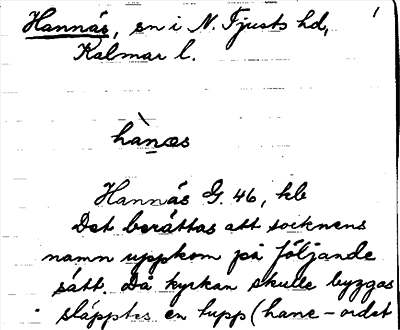 Hannäs, sn i N. Tjusts hd, 1
Kalmar l.
hànæs
Hannäs G. 46, kb
Det berättas att socknens
namn uppkom på följande
sätt. Då kyrkan skulle byggas
släpptes en tupp (hane - ordet